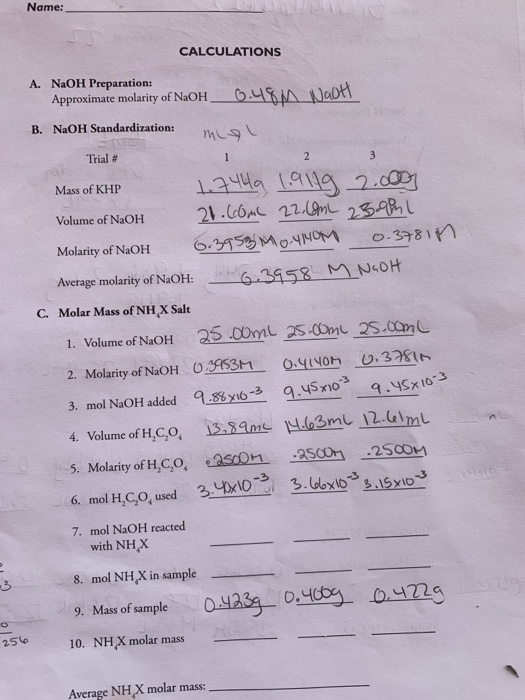 Name:
CALCULATIONS
A. NaOH Preparation:
Approximate molarity of NaOH 0.48M NaOH
B. NaOH Standardization:
Trial # 1 2 3
Mass of KHP 1.744g 1.911g 2.000g
Volume of NaOH 21.60mL 22.60mL
Molarity of NaOH 0.3953M 0.4140M 0.3781M
Average molarity of NaOH: 0.3958 M NaOH
C. Molar Mass of NH₄X Salt
1. Volume of NaOH 25.00mL 25.00mL 25.00mL
2. Molarity of NaOH 0.3953M 0.4140M 0.3781M
3. mol NaOH added 9.88x10⁻³ 9.45x10⁻³ 9.45x10⁻³
4. Volume of H₂C₂O₄ 13.89mL 14.63mL 12.61mL
5. Molarity of H₂C₂O₄ .2500M .2500M .2500M
6. mol H₂C₂O₄ used 3.40x10⁻³ 3.66x10⁻³ 3.15x10⁻³
7. mol NaOH reacted
with NH₄X
8. mol NH₄X in sample
3
9. Mass of sample 0.423g 0.400g 0.422g
256
10. NH₄X molar mass
Average NH₄X molar mass: